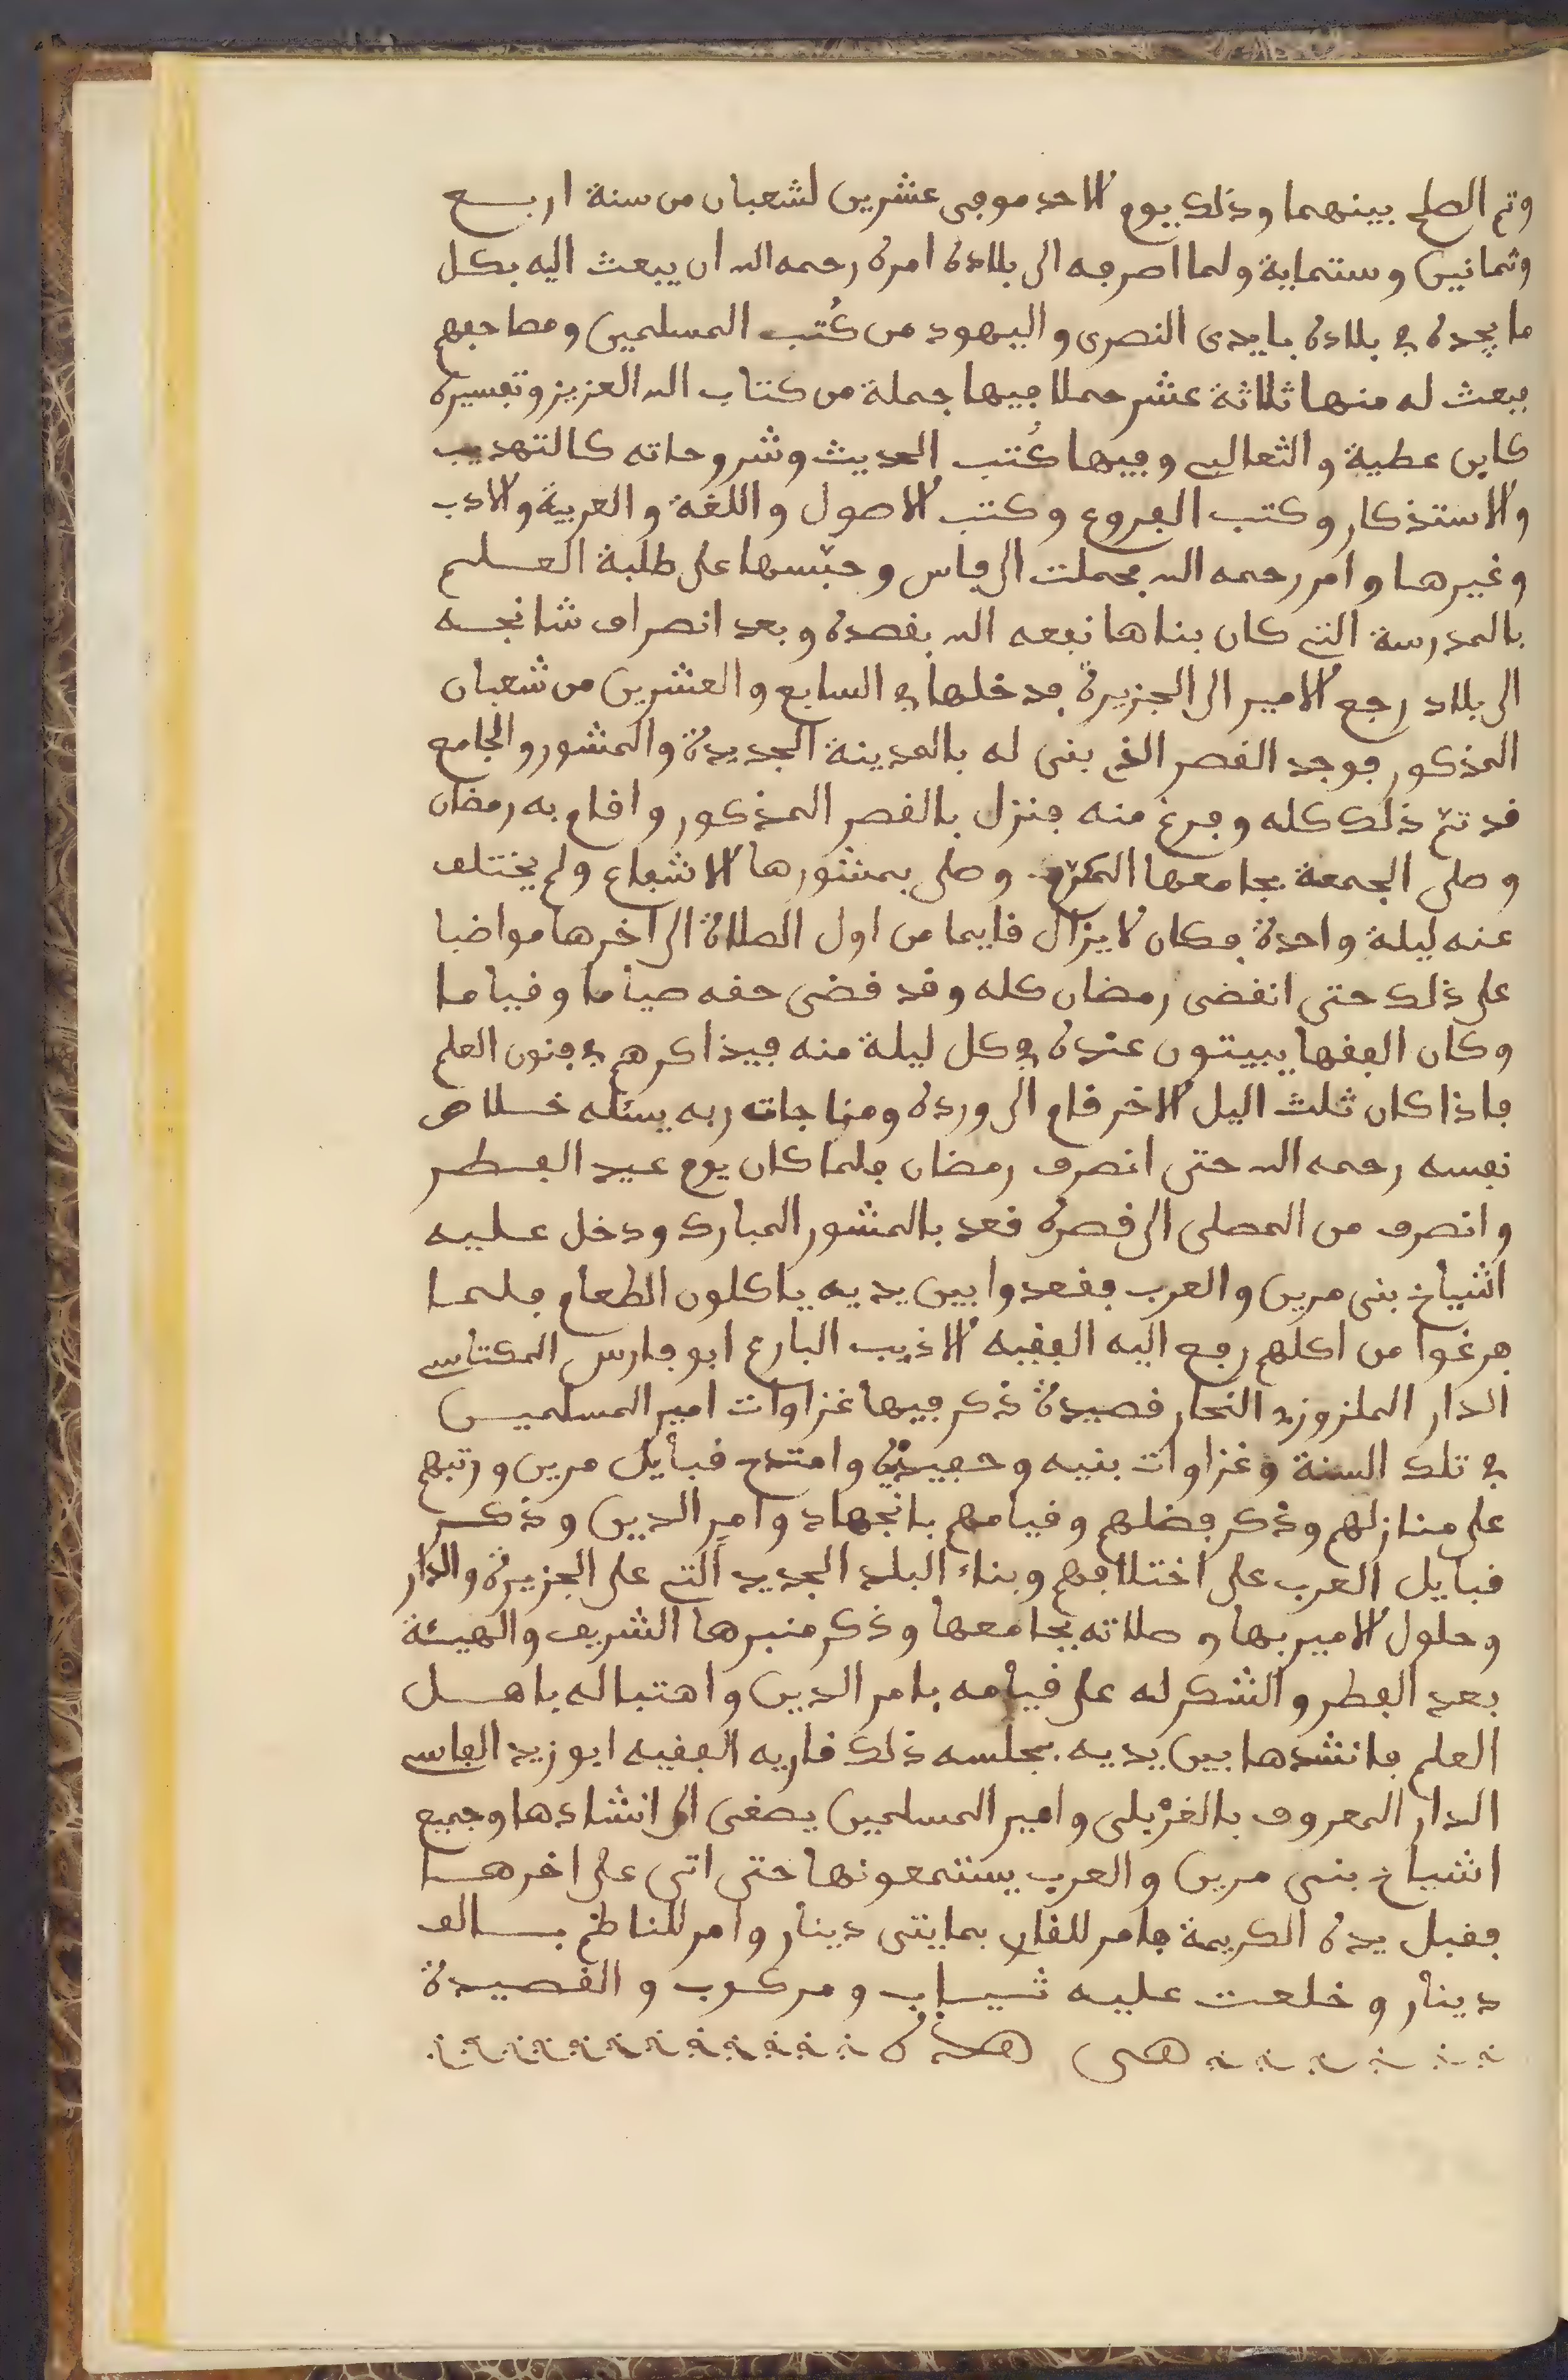 وتم الصلح بينهما وذلك يوم الاحد موفى عشرين لشعبان من سنة اربع
وثمانين وستماية ولما اصرفه الى بلاده امره رحمه الله ان يبعث اليه بكل
ما يجده في بلاده بايدى النصرى واليهود من كُتب المسلمين ومصاحفهم
فبعث له منها ثلاثة عشر حملا فيها جملة من كتاب الله العزيز وتفسيره
كابن عطية والثعالبي وفيها كُتب الحديث وشروحاته كالتهذيب
والاستذكار وكتب الفروع وكتب الاصول واللغة والعربية والادب
وغيرها وامر رحمه الله بحملت الى فاس وحبّسها على طلبة العلم
بالمدرسة التي كان بناها نفعه الله بقصده وبعد انصراف شانجه
الى بلاد رجع الامير الى الجزيرة فدخلها في السابع والعشرين من شعبان
المذكور فوجد القصر الذي بنى له بالمدينة الجديدة والمشور والجامع
قد تمّ ذلك كله وفرغ منه فنزل بالقصر المذكور واقام به رمضان
وصلى الجمعة بجامعها المكرّم وصلى بمشورها الاشفاع ولم يختلف
عنه ليلة واحدة فكان لا يزال قايما من اول الصلاة الى اخرها مواضبا
على ذلك حتى انقضى رمضان كله وقد قضى حقه صياما وقياما
وكان الفقها يبيتون عنده في كل ليلة منه فيذاكرهم في فنون العلم
فاذا كان ثلث اليل الاخر قام الى ورده ومناجات ربه يسئله خلاص
نفسه رحمه الله حتى انصرف رمضان فلما كان يوم عيد الفطر
وانصرف من المصلى الى قصره قعد بالمشور المبارك ودخل عليه
اشياخ بنى مرين والعرب فقعدوا بين يديه ياكلون الطعام فلما
فرغوا من اكلهم رفع اليه الفقيه الاذيب البارع ابو فارس المكناسي
الدار الملزوزي النجار قصيدة ذكر فيها غزاوات امير المسلمين
في تلك السنة وغزاوات بنيه وحفيديه وامتدح قبايل مرين ورتبهم
على منازلهم وذكر فضلهم وقيامهم بالجهاد وامر الدين وذكر
قبايل العرب على اختلافهم وبناء البلد الجديد التي على الجزيرة والدار
وحلول الامير بها وصلاته بجامعها وذكر منبرها الشريف والهيئة
بعد الفطر والشكر له على قيامه بامر الدين واهتباله باهل
العلم فانشدها بين يديه بمجلسه ذلك قاريه الفقيه ابو زيد الفاسي
الدار المعروف بالغرْبلى وامير المسلمين يصغى الى انشادها وجميع
اشياخ بنى مرين والعرب يستمعونها حتى اتى على اخرها
فقبل يده الكريمة فامر للقاري بمايتى دينار وامر للناظم بالف
دينار وخلعت عليه ثياب ومركوب والقصيدة
هى هذه